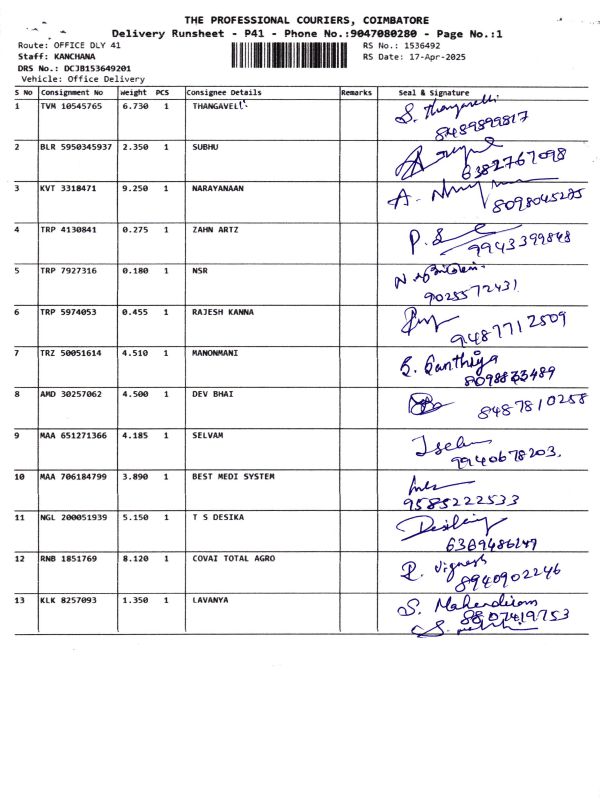 THE PROFESSIONAL COURIERS, COIMBATORE
Delivery Runsheet - P41 - Phone No.:9047080280 - Page No.:1
Route: OFFICE DLY 41 RS No.: 1536492
Staff: KANCHANA RS Date: 17-Apr-2025
DRS No.: DCJB153649201
Vehicle: Office Delivery
S No Consignment No Weight PCS Consignee Details Remarks Seal & Signature
1 TVM 10545765 6.730 1 THANGAVEL S. Thangavelu
8489899817
2 BLR 5950345937 2.350 1 SUBHU
6382767098
3 KVT 3318471 9.250 1 NARAYANAAN A.
8098045275
4 TRP 4130841 0.275 1 ZAHN ARTZ P.
9943399848
5 TRP 7927316 0.180 1 NSR
9025572431
6 TRP 5974053 0.455 1 RAJESH KANNA
9487712509
7 TRZ 50051614 4.510 1 MANONMANI Santhiya
8098833489
8 AMD 30257062 4.500 1 DEV BHAI
8487810258
9 MAA 651271366 4.185 1 SELVAM
9940678203.
10 MAA 706184799 3.890 1 BEST MEDI SYSTEM
9585222533
11 NGL 200051939 5.150 1 T S DESIKA
6369486249
12 RNB 1851769 8.120 1 COVAI TOTAL AGRO R. Vignesh
8940902246
13 KLK 8257093 1.350 1 LAVANYA S. Mahendiran
8807419753